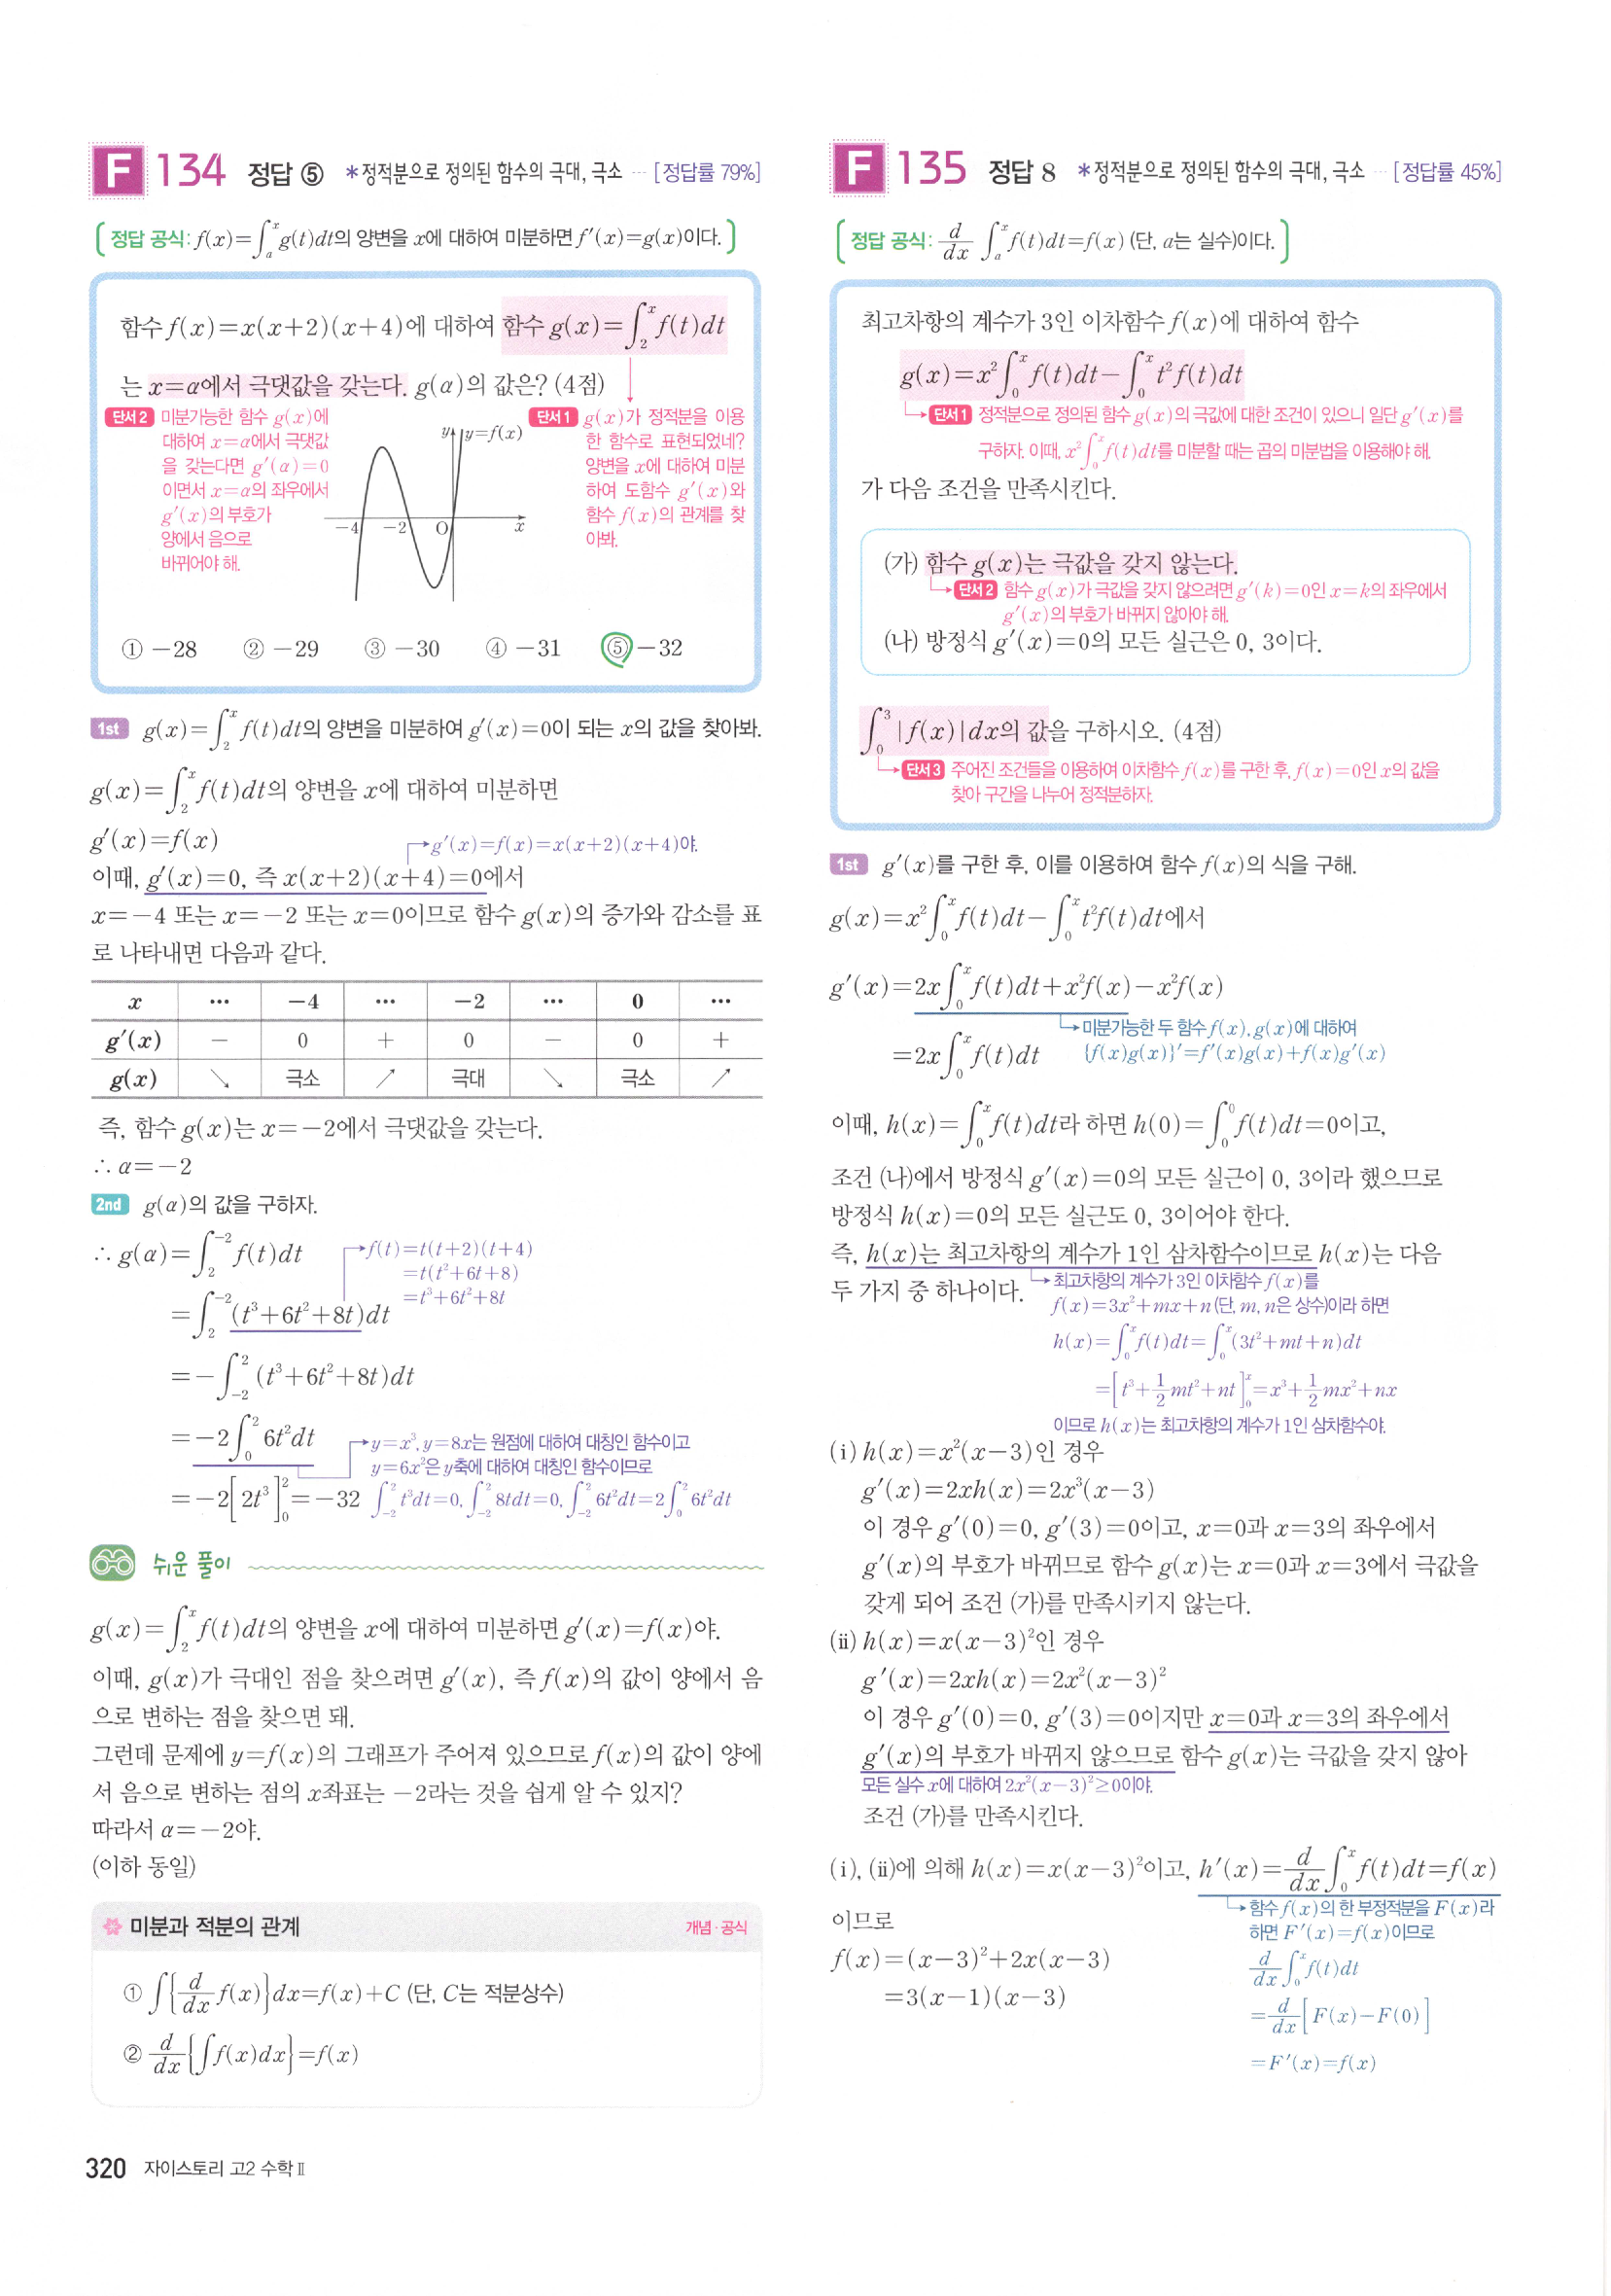 F 134 정답 ⑤ *정적분으로 정의된 함수의 극대, 극소 ··· [정답률 79%]
(정답 공식: f(x)=∫ₐˣ g(t)dt의 양변을 x에 대하여 미분하면 f′(x)=g(x)이다.)
함수 f(x)=x(x+2)(x+4)에 대하여 함수 g(x)=∫₂ˣ f(t)dt
는 x=α에서 극댓값을 갖는다. g(α)의 값은? (4점)
단서2 미분가능한 함수 g(x)에
대하여 x=α에서 극댓값
을 갖는다면 g′(α)=0
이면서 x=α의 좌우에서
g′(x)의 부호가
양에서 음으로
바뀌어야 해.
y y=f(x)
-4 -2 O x
단서1 g(x)가 정적분을 이용
한 함수로 표현되었네?
양변을 x에 대하여 미분
하여 도함수 g′(x)와
함수 f(x)의 관계를 찾
아봐.
① -28 ② -29 ③ -30 ④ -31 ⑤ -32
1st g(x)=∫₂ˣ f(t)dt의 양변을 미분하여 g′(x)=0이 되는 x의 값을 찾아봐.
g(x)=∫₂ˣ f(t)dt의 양변을 x에 대하여 미분하면
g′(x)=f(x)
g′(x)=f(x)=x(x+2)(x+4)야.
이때, g′(x)=0, 즉 x(x+2)(x+4)=0에서
x=-4 또는 x=-2 또는 x=0이므로 함수 g(x)의 증가와 감소를 표
로 나타내면 다음과 같다.
x ··· -4 ··· -2 ··· 0 ···
g′(x) - 0 + 0 - 0 +
g(x) ↘ 극소 ↗ 극대 ↘ 극소 ↗
즉, 함수 g(x)는 x=-2에서 극댓값을 갖는다.
∴ α=-2
2nd g(α)의 값을 구하자.
∴ g(α)=∫₂⁻² f(t)dt
f(t)=t(t+2)(t+4)
=t(t²+6t+8)
=t³+6t²+8t
=∫₂⁻² (t³+6t²+8t)dt
=-∫₋₂² (t³+6t²+8t)dt
=-2∫₀² 6t²dt
y=x³, y=8x는 원점에 대하여 대칭인 함수이고
y=6x²은 y축에 대하여 대칭인 함수이므로
∫₋₂² t³dt=0, ∫₋₂² 8tdt=0, ∫₋₂² 6t²dt=2∫₀² 6t²dt
=-2[2t³]₀²=-32
쉬운 풀이
g(x)=∫₂ˣ f(t)dt의 양변을 x에 대하여 미분하면 g′(x)=f(x)야.
이때, g(x)가 극대인 점을 찾으려면 g′(x), 즉 f(x)의 값이 양에서 음
으로 변하는 점을 찾으면 돼.
그런데 문제에 y=f(x)의 그래프가 주어져 있으므로 f(x)의 값이 양에
서 음으로 변하는 점의 x좌표는 -2라는 것을 쉽게 알 수 있지?
따라서 α=-2야.
(이하 동일)
미분과 적분의 관계 개념·공식
① ∫{d/dx f(x)}dx=f(x)+C (단, C는 적분상수)
② d/dx{∫f(x)dx}=f(x)
320 자이스토리 고2 수학Ⅱ
F 135 정답 8 *정적분으로 정의된 함수의 극대, 극소 ··· [정답률 45%]
[정답 공식: d/dx ∫ₐˣ f(t)dt=f(x) (단, a는 실수)이다.]
최고차항의 계수가 3인 이차함수 f(x)에 대하여 함수
g(x)=x²∫₀ˣ f(t)dt-∫₀ˣ t²f(t)dt
단서1 정적분으로 정의된 함수 g(x)의 극값에 대한 조건이 있으니 일단 g′(x)를
구하자. 이때, x²∫₀ˣ f(t)dt를 미분할 때는 곱의 미분법을 이용해야 해.
가 다음 조건을 만족시킨다.
(가) 함수 g(x)는 극값을 갖지 않는다.
단서2 함수 g(x)가 극값을 갖지 않으려면 g′(k)=0인 x=k의 좌우에서
g′(x)의 부호가 바뀌지 않아야 해.
(나) 방정식 g′(x)=0의 모든 실근은 0, 3이다.
∫₀³ |f(x)|dx의 값을 구하시오. (4점)
단서3 주어진 조건들을 이용하여 이차함수 f(x)를 구한 후, f(x)=0인 x의 값을
찾아 구간을 나누어 정적분하자.
1st g′(x)를 구한 후, 이를 이용하여 함수 f(x)의 식을 구해.
g(x)=x²∫₀ˣ f(t)dt-∫₀ˣ t²f(t)dt에서
g′(x)=2x∫₀ˣ f(t)dt+x²f(x)-x²f(x)
미분가능한 두 함수 f(x), g(x)에 대하여
{f(x)g(x)}′=f′(x)g(x)+f(x)g′(x)
=2x∫₀ˣ f(t)dt
이때, h(x)=∫₀ˣ f(t)dt라 하면 h(0)=∫₀⁰ f(t)dt=0이고,
조건 (나)에서 방정식 g′(x)=0의 모든 실근이 0, 3이라 했으므로
방정식 h(x)=0의 모든 실근도 0, 3이어야 한다.
즉, h(x)는 최고차항의 계수가 1인 삼차함수이므로 h(x)는 다음
두 가지 중 하나이다.
최고차항의 계수가 3인 이차함수 f(x)를
f(x)=3x²+mx+n (단, m, n은 상수)이라 하면
h(x)=∫₀ˣ f(t)dt=∫₀ˣ (3t²+mt+n)dt
=[t³+1/2 mt²+nt]₀ˣ=x³+1/2 mx²+nx
이므로 h(x)는 최고차항의 계수가 1인 삼차함수야.
(ⅰ) h(x)=x²(x-3)인 경우
g′(x)=2xh(x)=2x³(x-3)
이 경우 g′(0)=0, g′(3)=0이고, x=0과 x=3의 좌우에서
g′(x)의 부호가 바뀌므로 함수 g(x)는 x=0과 x=3에서 극값을
갖게 되어 조건 (가)를 만족시키지 않는다.
(ⅱ) h(x)=x(x-3)²인 경우
g′(x)=2xh(x)=2x²(x-3)²
이 경우 g′(0)=0, g′(3)=0이지만 x=0과 x=3의 좌우에서
g′(x)의 부호가 바뀌지 않으므로 함수 g(x)는 극값을 갖지 않아
모든 실수 x에 대하여 2x²(x-3)²≥0이야.
조건 (가)를 만족시킨다.
(ⅰ), (ⅱ)에 의해 h(x)=x(x-3)²이고, h′(x)=d/dx ∫₀ˣ f(t)dt=f(x)
이므로
f(x)=(x-3)²+2x(x-3)
=3(x-1)(x-3)
함수 f(x)의 한 부정적분을 F(x)라
하면 F′(x)=f(x)이므로
d/dx ∫₀ˣ f(t)dt
=d/dx[F(x)-F(0)]
=F′(x)=f(x)